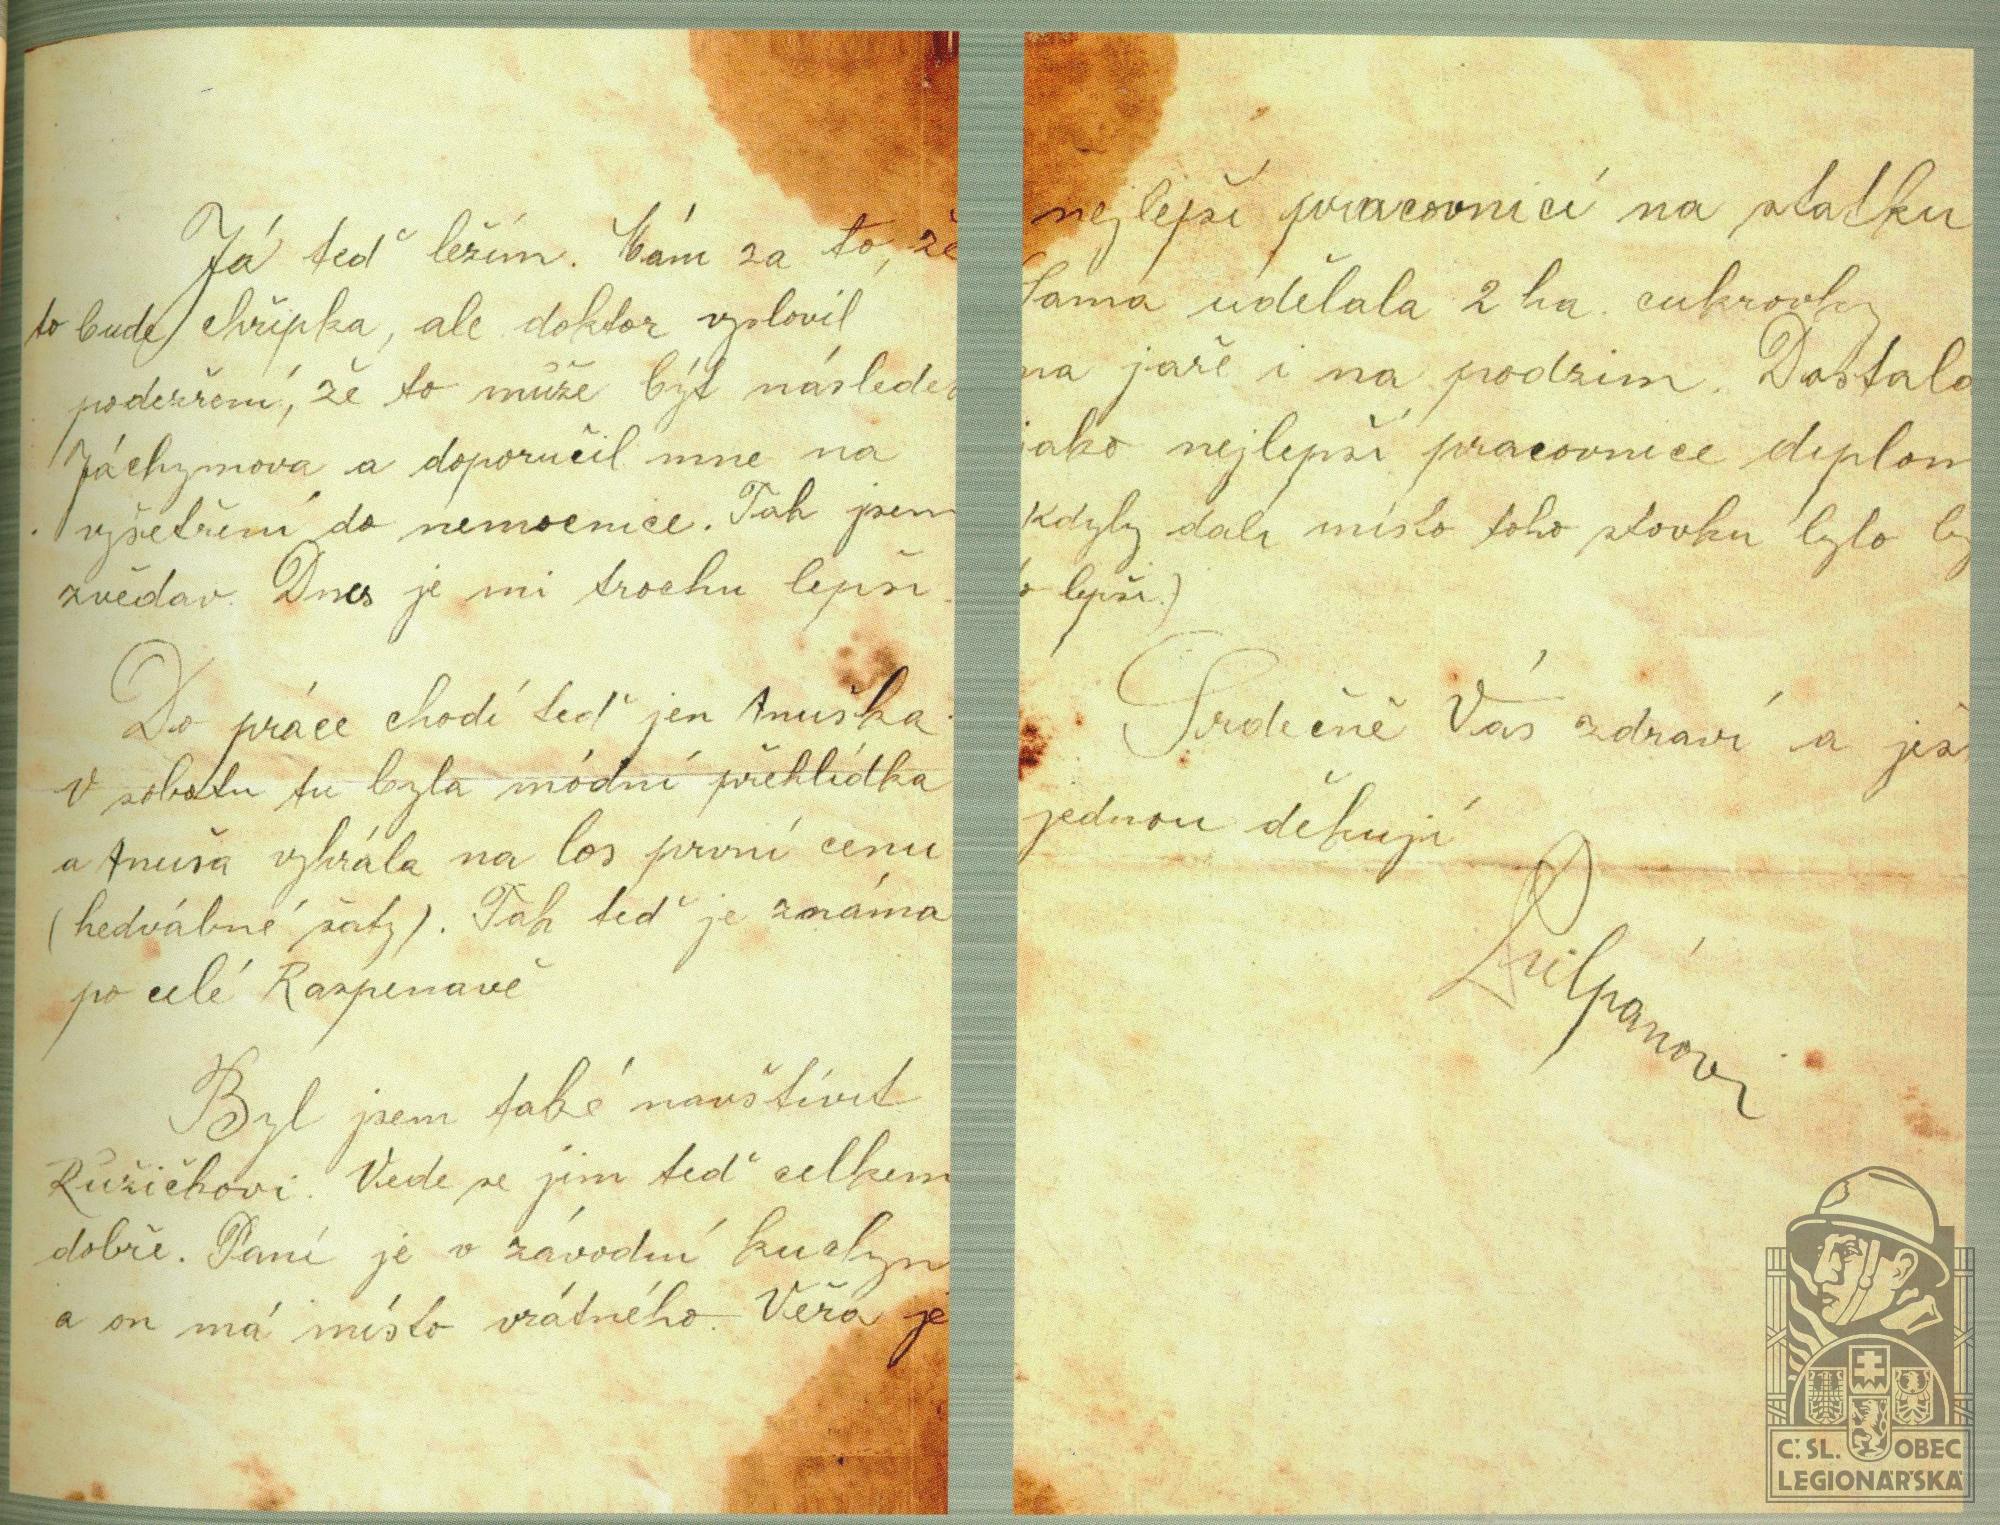 Já teď ležím. Mám za to, že
to bude chřipka, ale doktor vyslovil
podezření, že to může být následe
Jáchymova a doporučil mne na
vyšetření do nemocnice. Tak jsem
zvědav. Dnes je mi trochu lepši.
Do práce chodí teď jen Anuška.
V sobotu tu byla módní přehlídka
a Anuša vyhrála na los první cenu
(hedvábné šaty). Tak teď je známa
po celé Raspenavě
Byl jsem také navštívit
Růžičkovi. Vede se jim teď celkem
dobře. Paní je v závodní kuchyn
a on má místo vrátného. Věra je
nejlepší pracovnicí na statku
Sama udělala 2 ha. cukrovky
na jaře i na podzim. Dostala
jako nejlepší pracovnice diplom
Kdyby dali místo toho stovku bylo by
o lepši.)
Srdečně Vás zdraví a ješ
jednou děkují
Č.SL. OBEC
LEGIONÁŘSKÁ